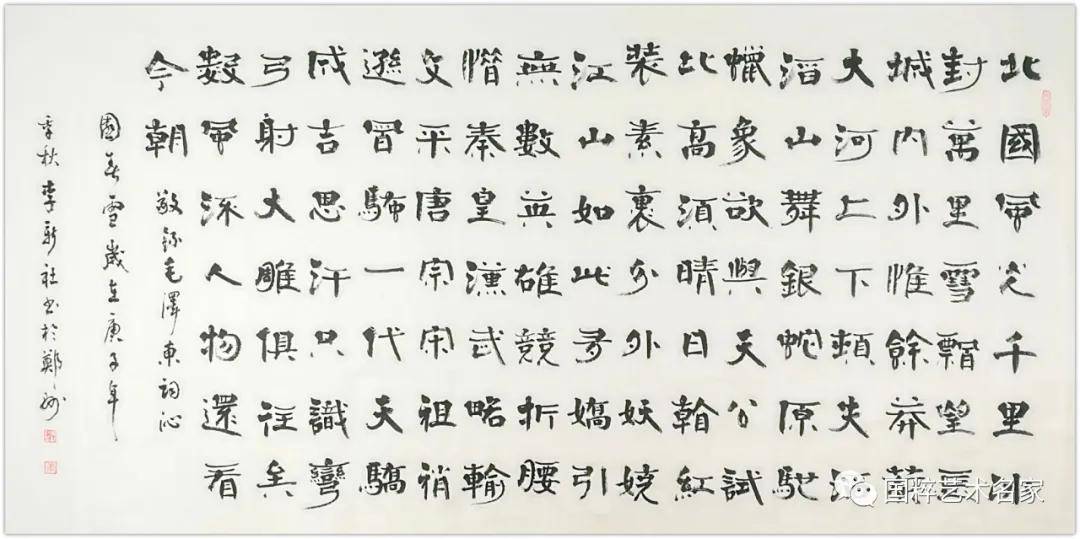 北國風光千里冰
封萬里雪飄望長
城内外惟餘莽莽
大河上下頓失滔
滔山舞銀蛇原馳
蠟象欲與天公試
比高須晴日看紅
裝素裹分外妖嬈
江山如此多嬌引
無數英雄競折腰
惜秦皇漢武略輸
文采唐宗宋祖稍
遜風騷一代天驕
成吉思汗只識彎
弓射大雕俱往矣
數風流人物還看
今朝
敬錄毛澤東詞沁
園春雪歲在庚子年
季秋李新社书於鄭州
国粹艺术名家